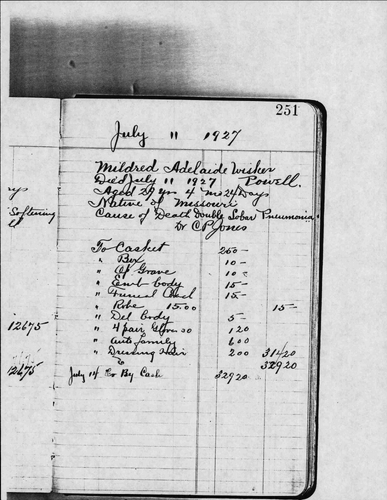 251
July 11 1927
Mildred Adelaide Wisher
Died July 11 1927 Powell.
Aged 29 yrs 4 mo 24 Days
Native of Missouri
Cause of Death Double Lobar Pneumonia
Dr C P Jones
To Casket 250-
" Box 10-
" Op Grave 10-
" Emb body 15-
" Funeral 15-
" Robe 15.00 15-
" Del body 5-
" 4 pair Gloves 120
" Auto family 600
" Dressing Hair 200 31420
32920
July 14 Cr By Cash 32920
Softening
12675
12675